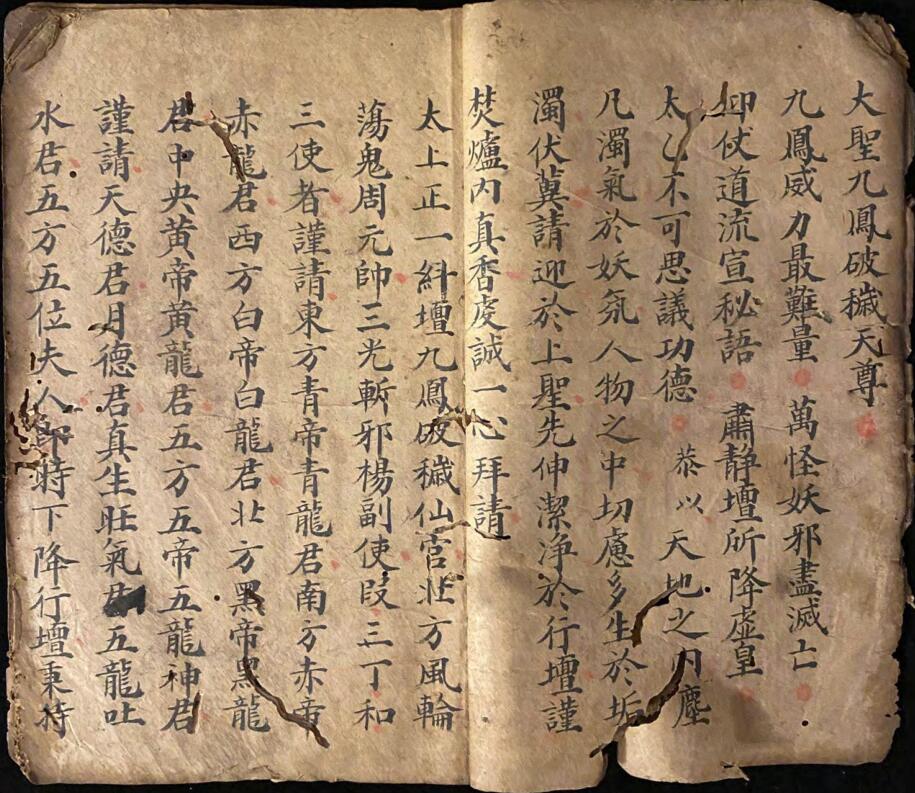 大聖九鳳破穢天尊
九鳳威力最難量 萬怪妖邪盡滅亡
仰仗道流宣秘語 肅静壇所降虛皇
太乙不可思議功德 恭以天地之内塵
凡濁氣於妖氛人物之中切慮多生於垢
濁伏冀請迎於上聖先伸潔净於行壇謹
焚爐内真香虔誠一心拜請
太上正一糾壇九鳳破穢仙官北方風輪
蕩鬼周元帥三光斬邪楊副使段三丁和
三使者謹請東方青帝青龍君南方赤帝
赤龍君西方白帝白龍君北方黑帝黑龍
君中央黄帝黄龍君五方五帝五龍神君
謹請天德君月德君真生旺氣君五龍吐
水君五方五位夫人即特下降行壇秉持